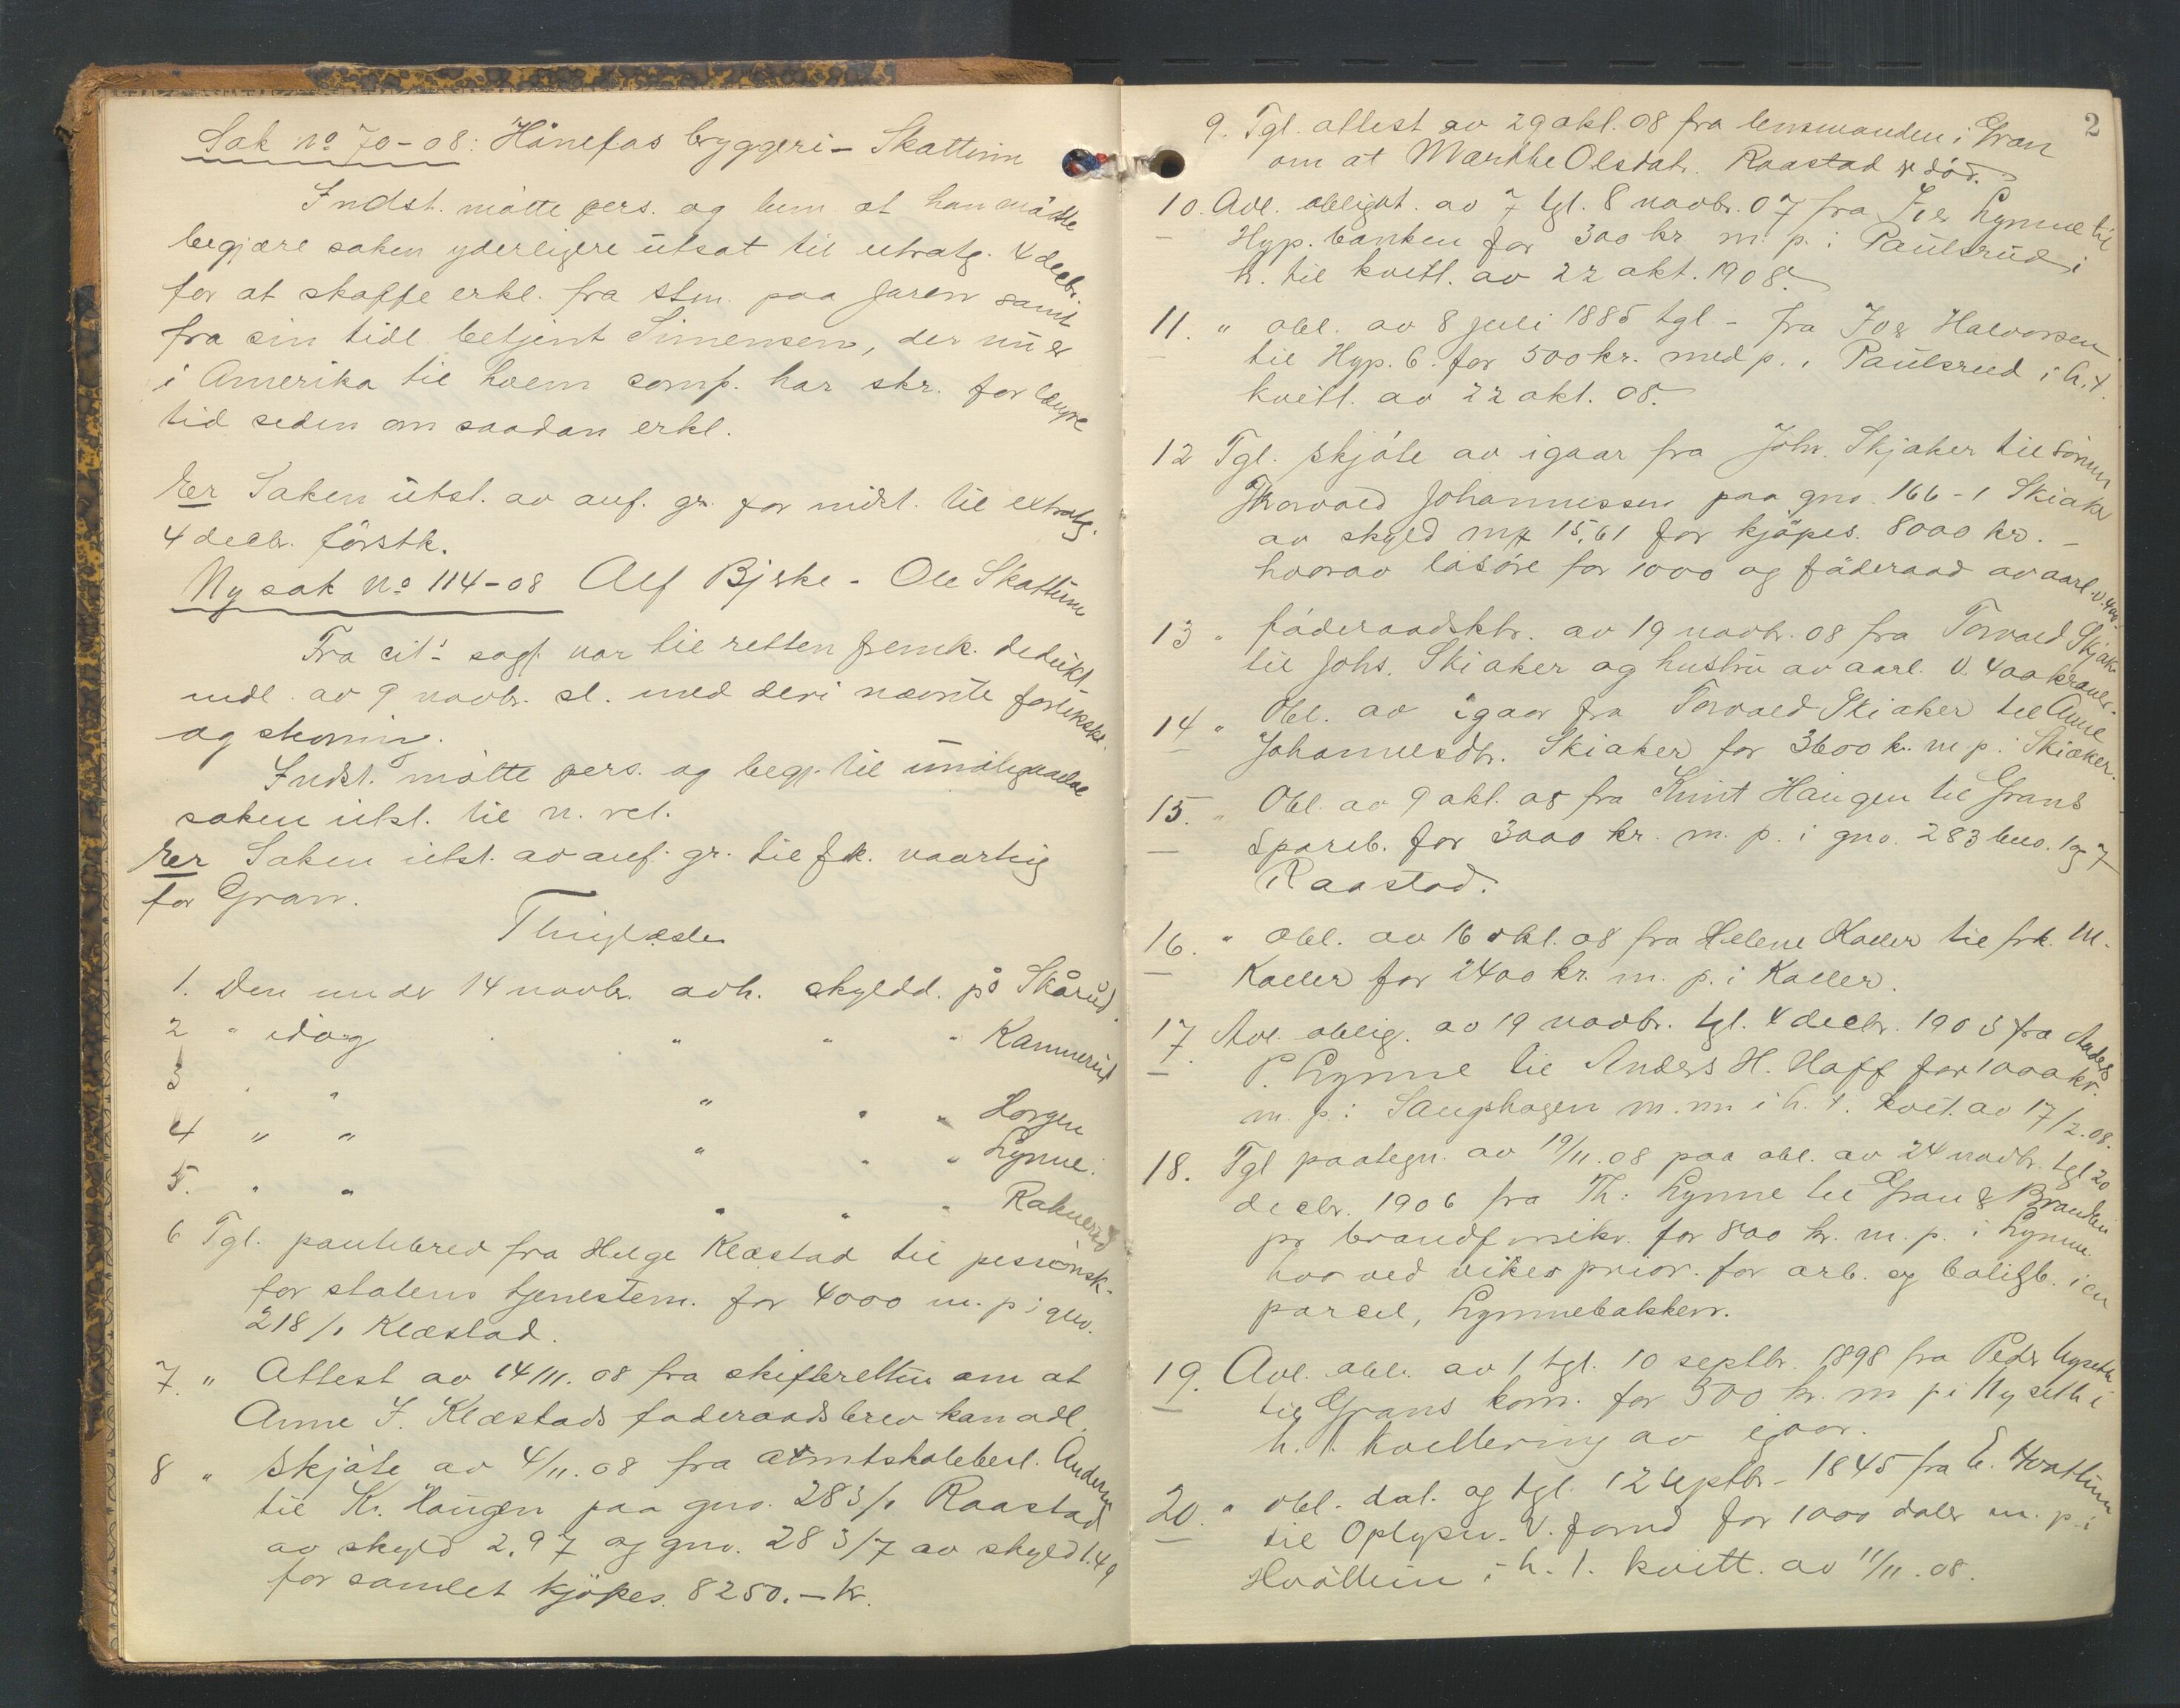 Sak No 70-08: Hönefos bryggeri - Skattum
Indst. mötte pers. og bem. at han måtte
begjære saken yderligere utsat til extratg. 4 decbr.
for at skaffe erkl. fra stm. paa Jaren samt
fra sin tidl. betjent Simensen, der nu er
i Amerika til hvem comp. har skr. for længre
tid siden om saadan erkl.
Er Saken utst. av anf. gr. for indst. til extratg.
4 decbr. förstk.
Ny sak No 114-08 Alf Bjerke - Ole Skattum
Fra cit's sagf. var til retten fremk. dedukt.
indl. av 9 novbr. sl. med deri nævnte forlikskl.
og stevning.
Indst. mötte pers. og begj. til
saken utst. til n. ret.
Er Saken utst. av anf. gr. til fk. vaarting
for Gran.
Thinglæste
1. Den under 14 novbr. avh. skyldd. på Skårud.
2 " idag . . " " " Kammerud
3 . " " . " Horgen
4 " " " . " Lynne.
5. " " . . " Raknerud
6 Tgl. pantebrev fra Helge Klæstad til pesionsk.
for statens tjenestem. for 4000 m. p. i gno.
218/1 Klæstad.
7. " Attest av 14/11.08 fra skifteretten om at
Anne I. Klæstads föderaadsbrev kan avl.
8 " Skjöte av 4/11.08 fra amtskolebest. Andersen
til Kr. Haugen paa gno. 283/1 Raastad
av skyld 2.97 og gno. 283/7 av skyld 1.49
for samlet kjöpes. 8250.- kr.
2
9. Tgl. attest av 29 okt. 08 fra lensmanden i Gran
om at Marthe Olsdatr. Raastad er död.
10. Avl. obligat. av 7 tgl. 8 novbr. 07 fra Iver Lynne til
Hyp. banken for 300 kr m. p. i Paulsrud i
h. til kvitt. av 22 okt. 1908.
11. " obl. av 8 juli 1885 tgl - fra Iver Halvorsen
til Hyp. b. for 500 kr. med p. i Paulsrud i h. t.
kvitt. av 22 okt. 08.
12 Tgl. skjöte av igaar fra Johs. Skjaker til sönnen
Thorvald Johannessen paa gno. 166-1 Skiaker
av skyld mk 15,61 for kjöpes. 8000 kr. -
hvorav lösöre for 1000 og föderaad av aarl. v. 400.-
13 " föderaadsktr. av 19 novbr. 08 fra Torvald Skjaker
til Johs. Skiaker og hustru av aarl. v. 400 kroner.
14 " Obl. av igaar fra Torvald Skiaker til Anne
Johannesdtr. Skiaker for 3600 kr. m p. i Skiaker.
15. " Obl. av 9 okt. 08 fra Knut Haugen til Grans
Spareb. for 3000 kr. m. p. i gno. 283 bno. 1 og 7
Raastad.
16. " obl. av 16 okt. 08 fra Helene Koller til frk. M.
Koller for 2400 kr. m. p. i Koller.
17. Avl. oblig. av 19 novbr. tgl. 4 decbr. 1903 fra Anders
P. Lynne til Anders H. Hoff for 1000 kr.
m. p. i Saugshagen m. m. i h. t. kvit. av 17/2.08.
18. Tgl paategn. av 19/11.08 paa obl. av 24 novbr. tgl 20
decbr. 1906 fra Th: Lynne til Gran & Brandbu
pr brandforsikr. for 800 kr. m. p. i Lynne
hvorved viker prior. for arb. og boligb. i en
parcel, Lynnebakken.
19. Avl. obl. av 1 tgl. 10 septbr. 1898 fra Peder Nyseth
til Grans kom. for 300 kr. m p i Nyseth i
h. t. kvittering av igaar.
20. " obl. dat. og tgl. 12 septbr - 1845 fra E. Hvattum
til Oplysn. V. fond for 1000 daler m. p. i
Hvattum i h. t. kvitt. av 11/11.08.